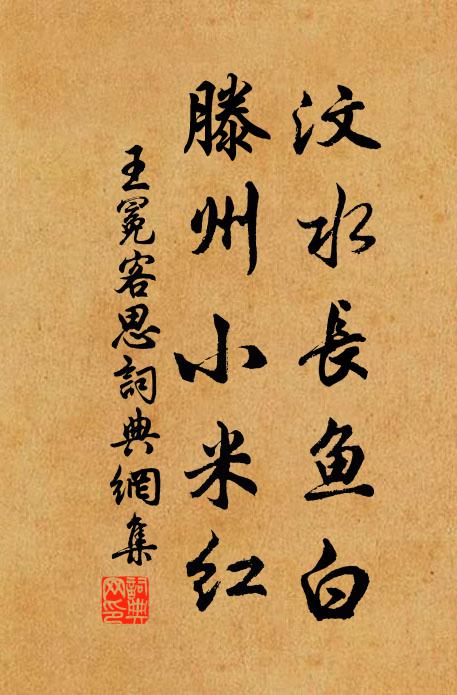 汶水長鱼白
滕州小米红
王冕客思詞典網集
詞典网印